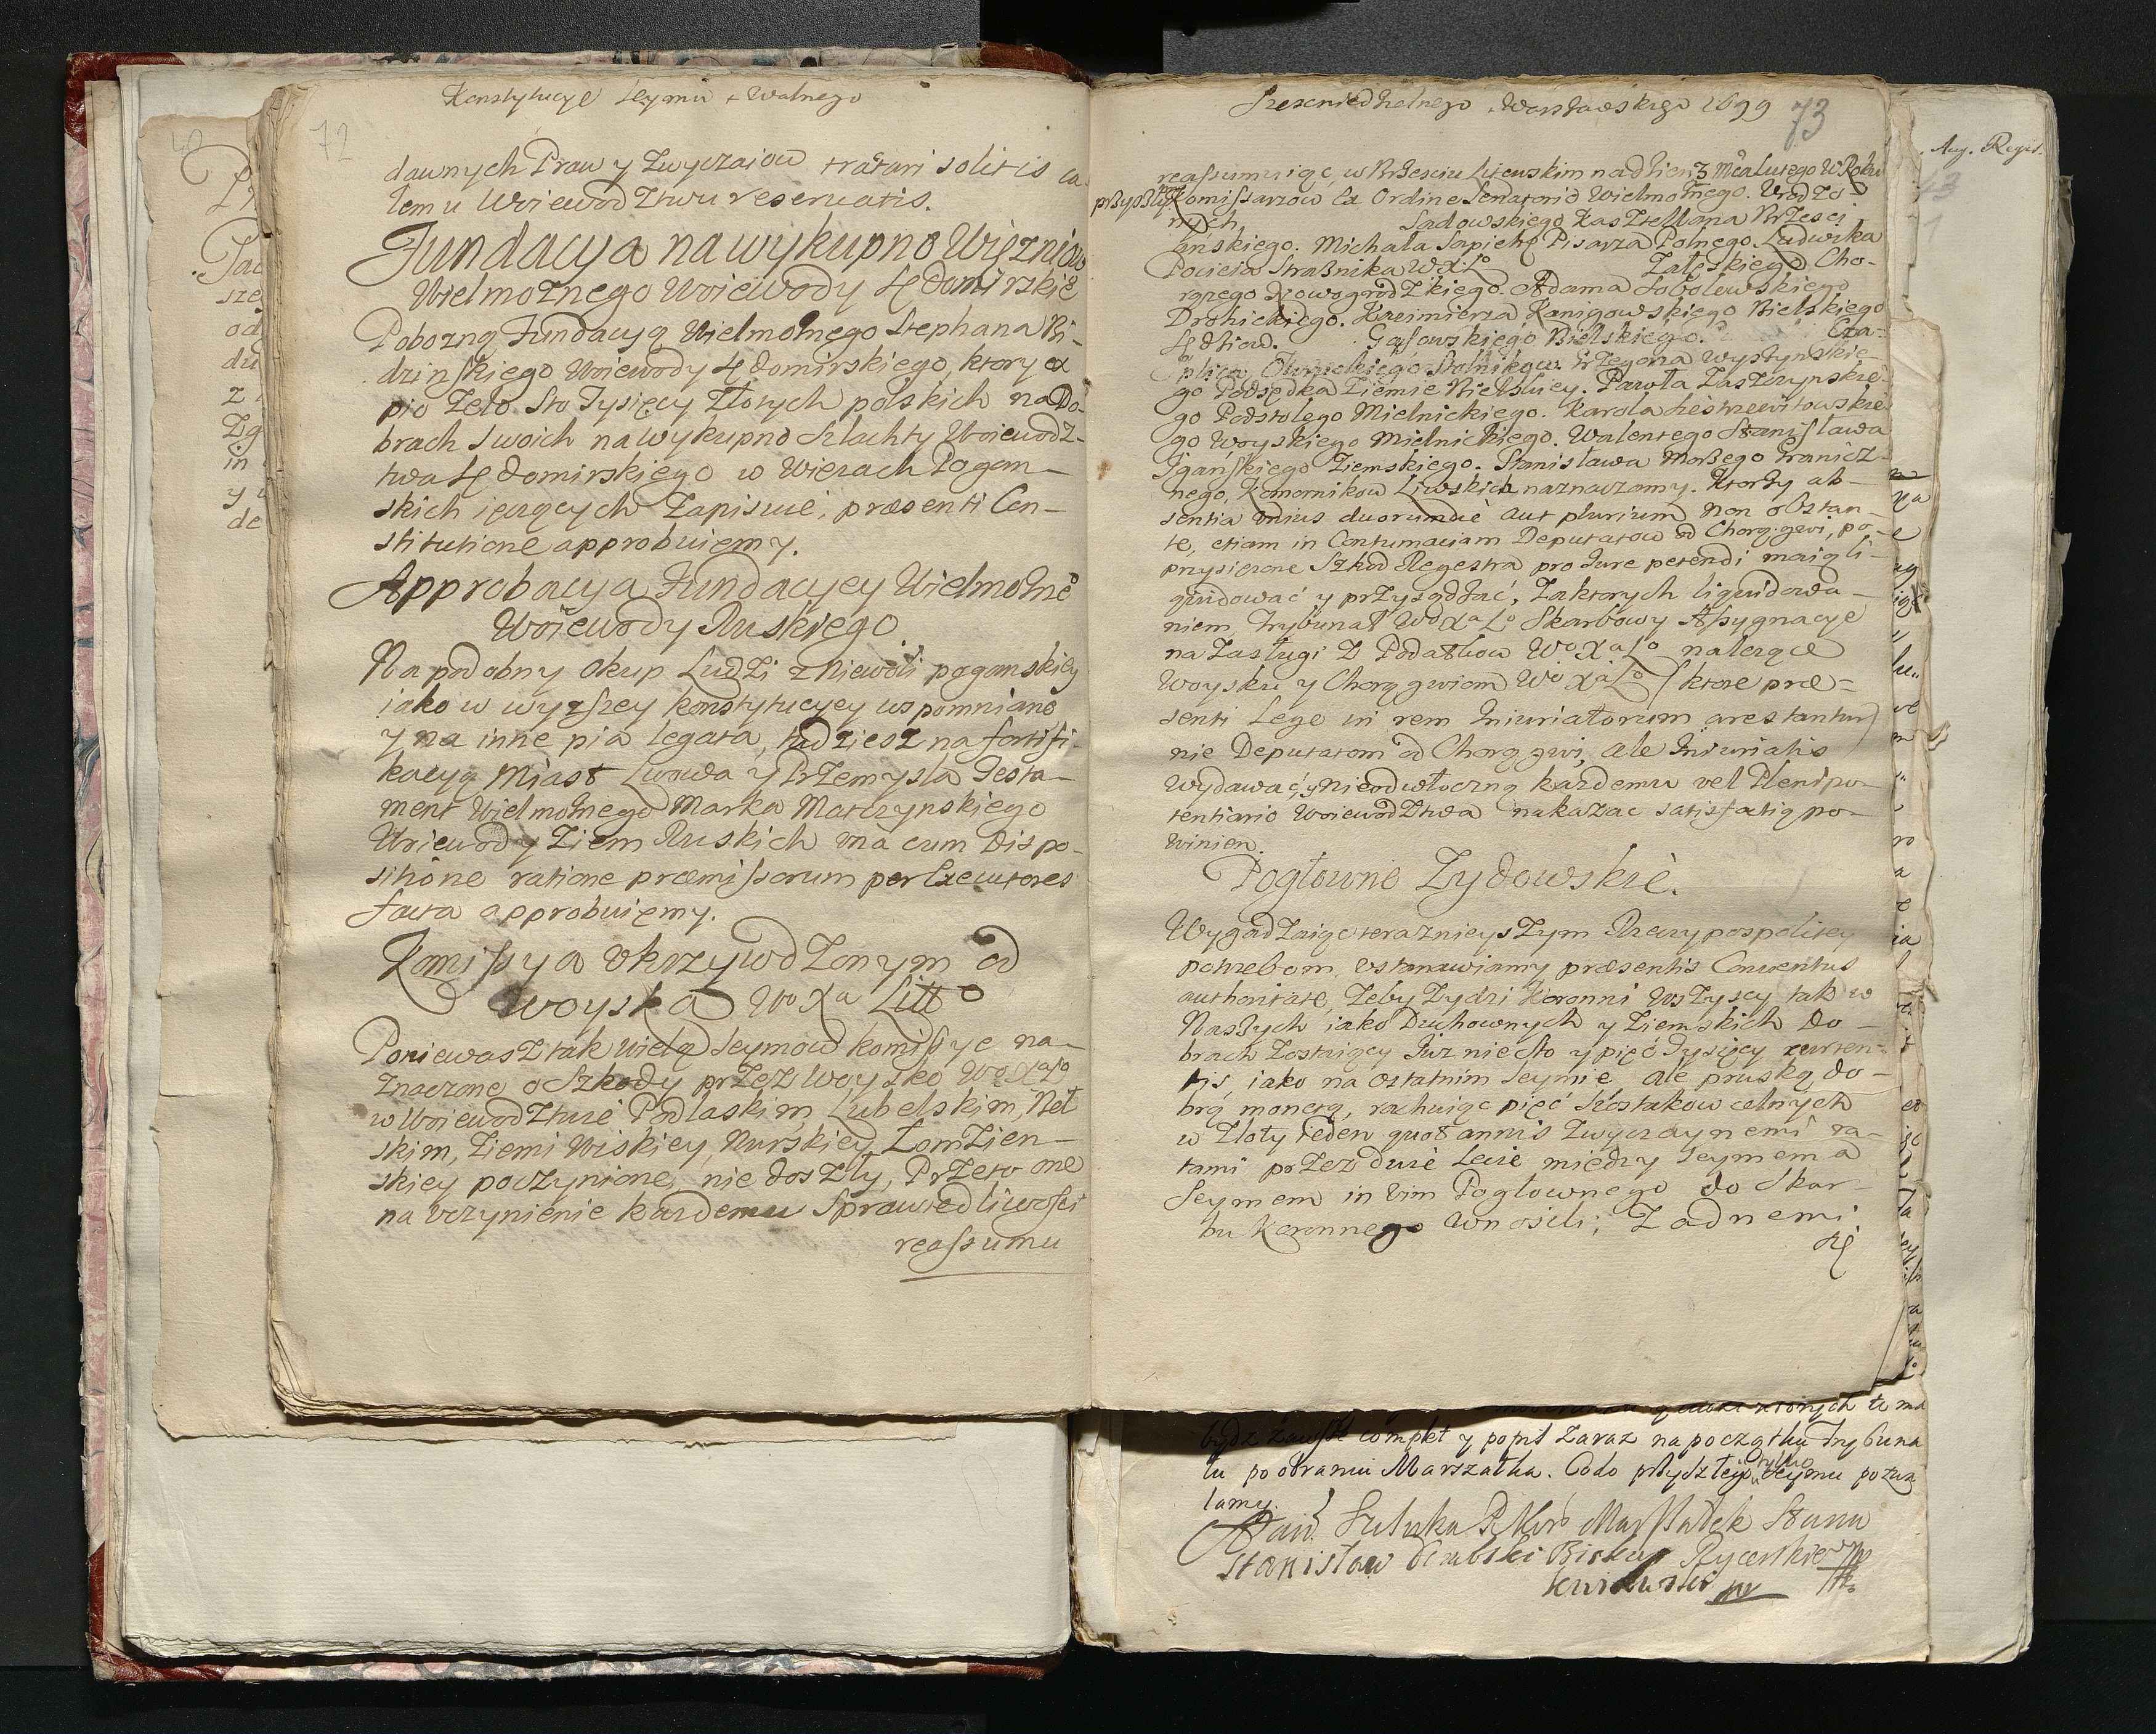 Konstytucye Seymu Walnego
72
dawnych Praw y Zwyczaiow tractari solitis ca
łemu Woiewodztwu reservatis.
Fundacya na wykupno Więzniow
Wielmoznego Woiewody Sędomirskie
Pobozną Fundacyą Wielmoznego Stephana Bi-
dzinskiego Woiewody Sędomirskiego, ktory ex
pio Zelo Sto Tysięcy Złotych polskich na Do-
brach swoich na wykupno Szlachty Woiewodz-
twa Sędomirskiego w Wiezach Pogan-
skich ięczących Zapisuie, præsenti Con-
stitutione approbuiemy.
Approbacya Fundacyey Wielmozne
Woiewody Ruskiego
Na podobny Okup Ludzi z Niewoli poganskiey
iako w wyzszey konstytucyey wspomniano
y na inne pia legata, tudziesz na fortifi-
kacyą Miast Lwowa y Przemysla Testa-
ment Wielmoznego Marka Matczynskiego
Woiewody Ziem Ruskich ma cum Dispo-
sitione ratione præmissorum per Executores
facta approbuiemy.
Komissya Ukrzywdzonym od
woyska Wo Xa Litto
Poniewasz tak wielą Seymow komissye na-
znaczone o Szkody przez Woysko Wo Xa Lo
w Woiewodztwie Podlaskim, Lubelskim, Bel
skim, Ziemi Wiskiey, Nurskiey Łomzien-
skiey poczynione, nie doszły, Przeto one
na uczynienie kazdemu Sprawiedliwosci
reassumu
Szescniedzielnego Warszawskiego 1699
73
reassumuiąc, w Brzesciu Litewskim na dzien 3 Mca Lutego W Roku
przyszłym Komissarzow Ex Ordine Senatorio Wielmoznego. Urodzo-
nych, Sadowskiego Kasztellana Brzesci
anskiego. Michała Sapiehę Pisarza Polnego. Ludwika
Pocieia Straznika W X Lo Załęskiego Cho-
rązego Nowogrodzkiego. Adama Sobolewskiego
Drohickiego. Kazimierza Kanigowskiego Bielskiego
Sędziow. Gąsowskiego Bielskiego. Cza-
plica Stolnikow
go Podsędka Ziemie Bielskiey. Pawła Zaszczynskie-
go Podstolego Mielnickiego. Karola
go Woyskiego Mielnickiego. Walentego Stanisława
Iganskiego Ziemskiego. Stanisława Granicz-
nego, Komornikow Liwskich naznaczamy. Ktorzy ab-
sentia unius duorumve aut plurium non obstan-
te, etiam in Contumaciam Deputatow od Chorągwi, po-
przysięzone Szkod Regestra pro Iure petendi maią li-
quidować y przysądzać, Zaktorych liquidowa-
niem, Trybunał Wo Xa Lo Skarbowy Assygnacye
na Zasługi Z Podatkow Wo Xa Lo nalezące
Woysku y Chorągwiom Wo Xa Lo (ktore præ-
senti Lege in rem Iniuriatorum arestantur)
nie Deputatom od Chorągwi, ale Iniuriatis
wydawać, y nieodwłoczną kazdemu vel Plenipo-
tentiario Woiewodztwa nakazac satisfatią po-
winien.
Pogłowne Zydowskie.
Wygadzaiąc teraznieyszym Rzeczypospolitey
potrzebom, Ustanawiamy præsentis Conventus
authoritate, Zeby Zydzi Koronni Wszyscy tak w
Naszych iako Duchownych y Ziemskich Do-
brach Zostaiący Iuz nie Sto y pięć Tysięcy curren-
tis, iako na Ostatnim Seymie, ale pruską do-
brą monetą, rachuiąc pięć Szostakow celnych
w Złoty ieden quotannis Zwyczaynemi ra-
tami przez dwie Lecie między Seymem a
Seymem in vim Pogłownego do Skar-
bu Koronnego wnosili; Zadnemi
Aug. Regis.
43
1
bydz zawsze complet y popis zaraz na początku Trybuna
łu po obraniu Marszałka. Codo przyszłego Seymu
lamy.
Marszałek Stanu
Stanisław Biskup Rycerskie